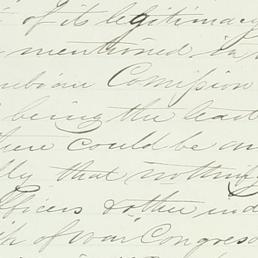 of its legitimacy
mentioned in
Comission
being the least
there could be an
that nothing
Officers & other ind
of war Congress